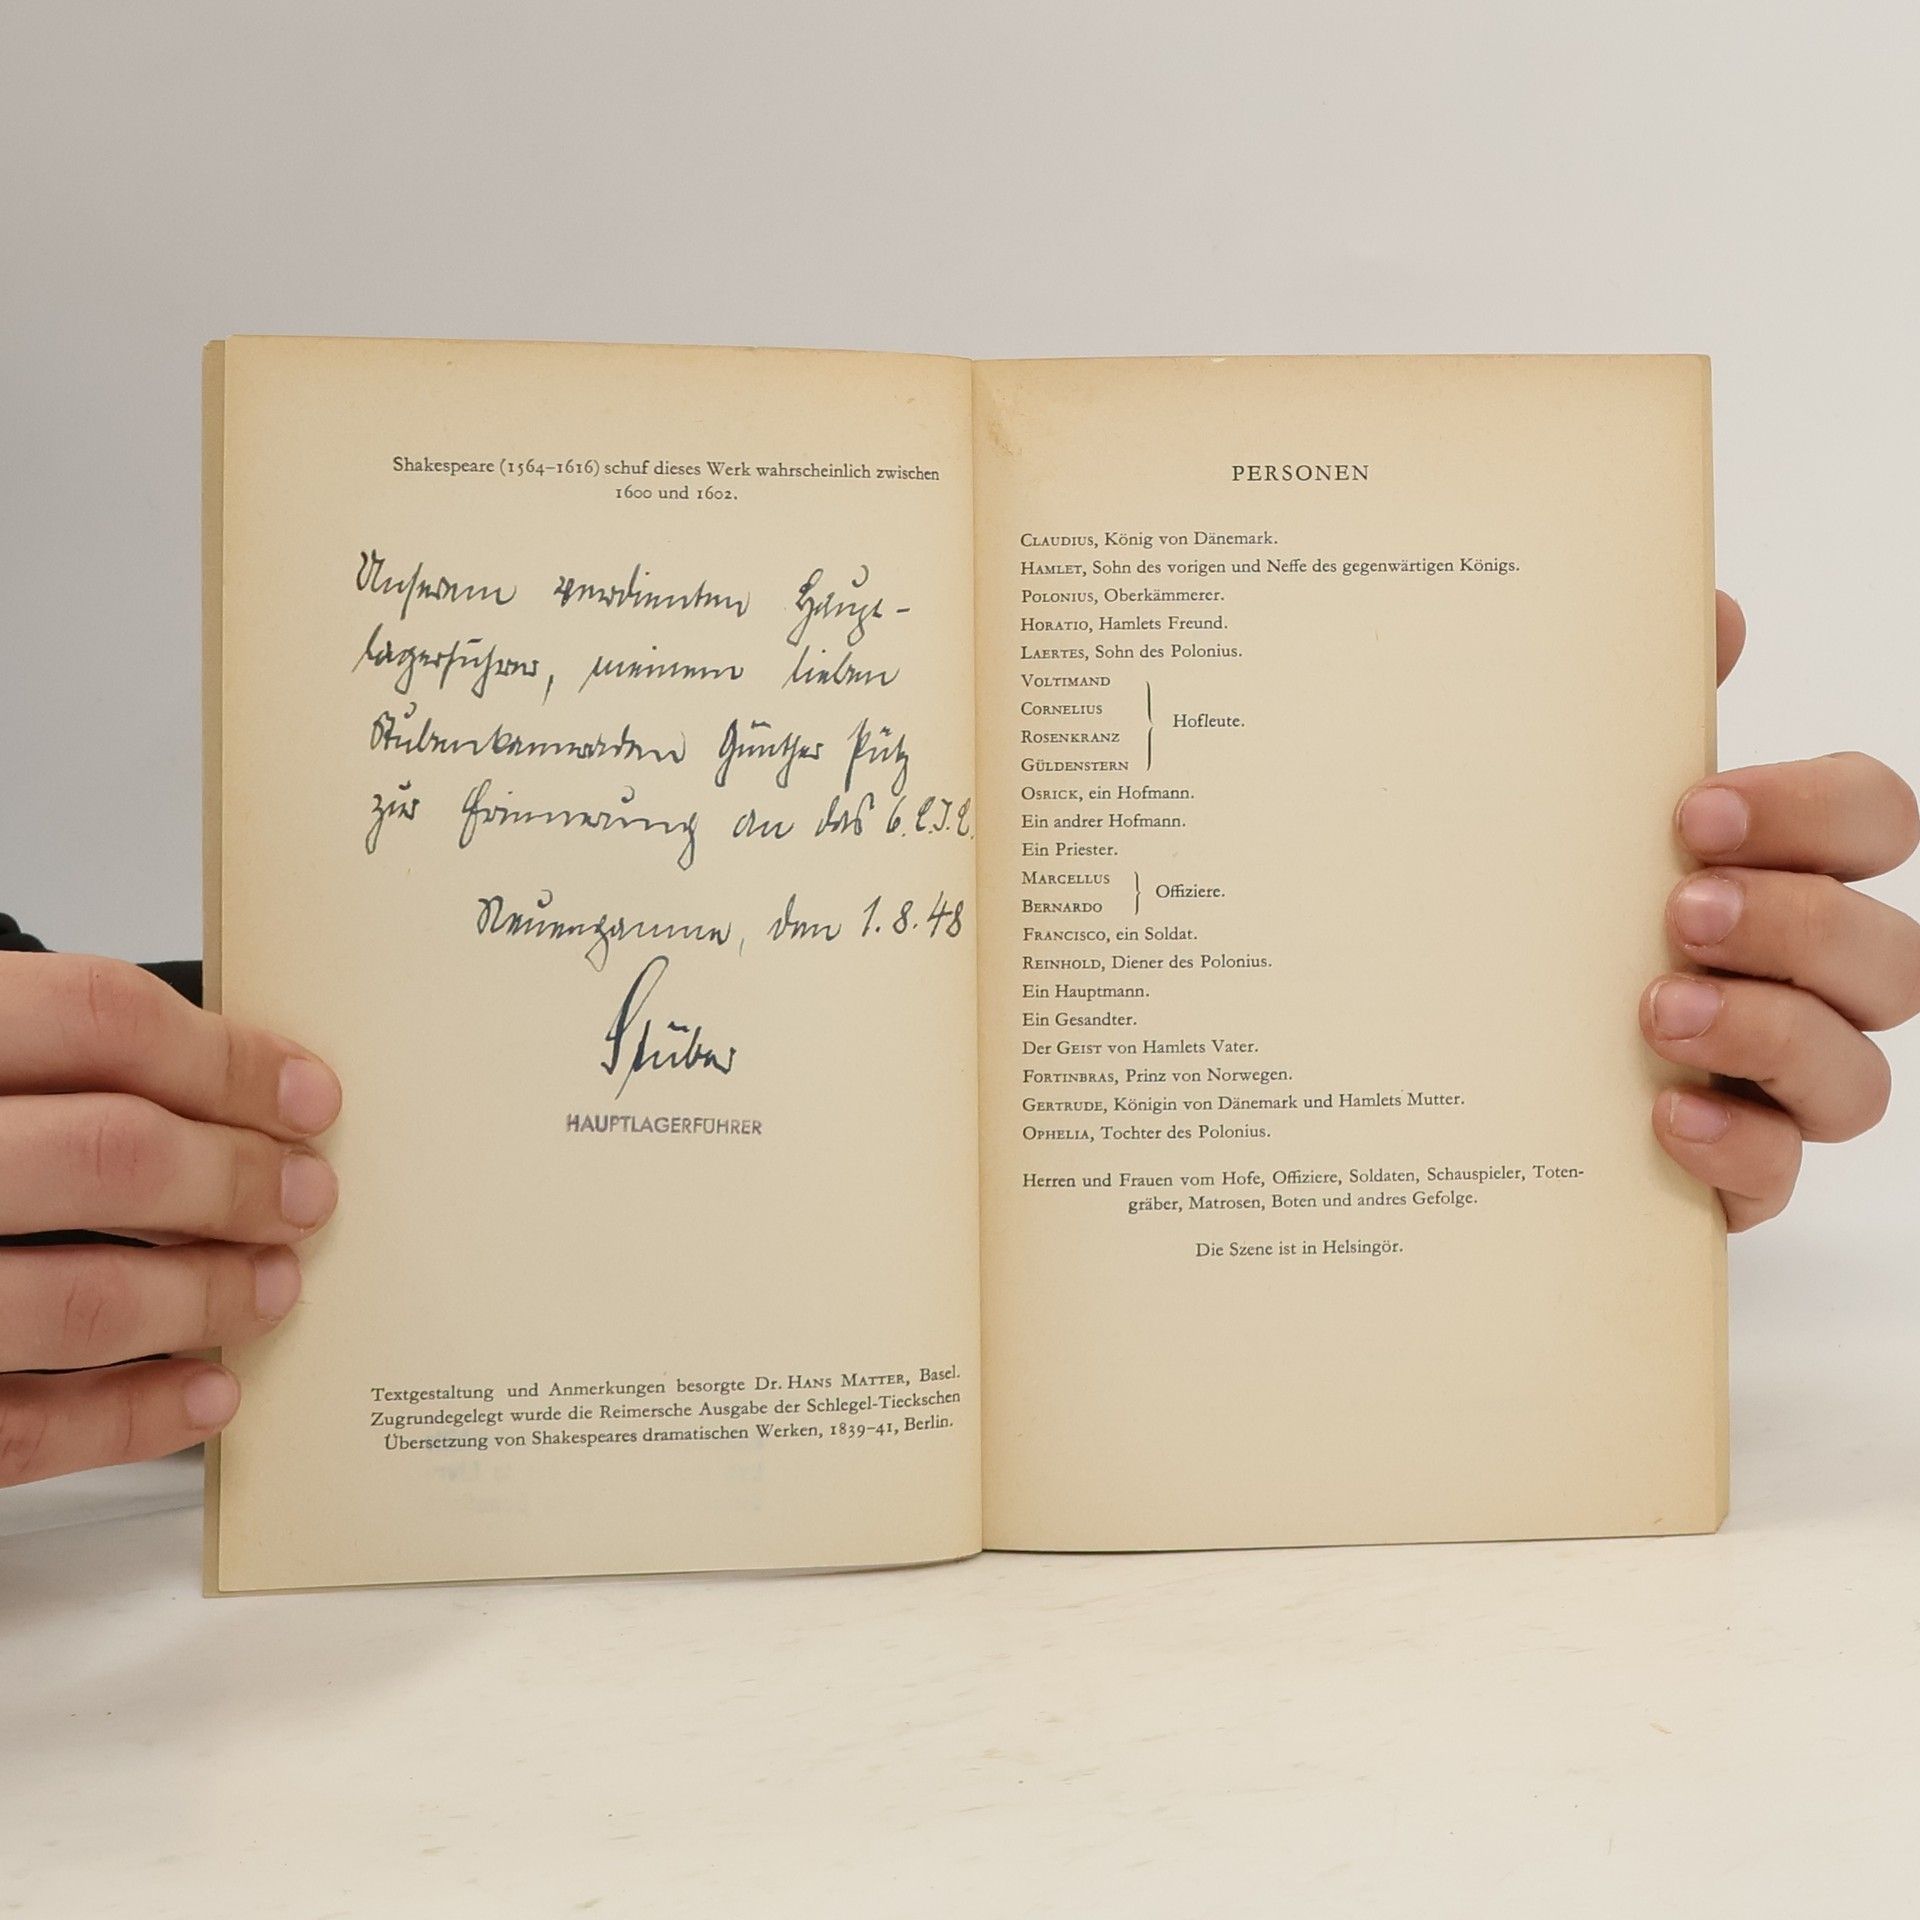 Shakespeare (1564–1616) schuf dieses Werk wahrscheinlich zwischen
1600 und 1602.
Unserem verdienten Haupt-
lagerführer, meinem lieben
Stubenkameraden Günther Pütz
zur Erinnerung an das 6. C.I.C.
Neuengamme, den 1. 8. 48
Stüber
HAUPTLAGERFÜHRER
Textgestaltung und Anmerkungen besorgte Dr. HANS MATTER, Basel.
Zugrundegelegt wurde die Reimersche Ausgabe der Schlegel-Tieckschen
Übersetzung von Shakespeares dramatischen Werken, 1839–41, Berlin.
PERSONEN
CLAUDIUS, König von Dänemark.
HAMLET, Sohn des vorigen und Neffe des gegenwärtigen Königs.
POLONIUS, Oberkämmerer.
HORATIO, Hamlets Freund.
LAERTES, Sohn des Polonius.
VOLTIMAND
CORNELIUS
ROSENKRANZ
GÜLDENSTERN
Hofleute.
OSRICK, ein Hofmann.
Ein andrer Hofmann.
Ein Priester.
MARCELLUS
BERNARDO
Offiziere.
FRANCISCO, ein Soldat.
REINHOLD, Diener des Polonius.
Ein Hauptmann.
Ein Gesandter.
Der GEIST von Hamlets Vater.
FORTINBRAS, Prinz von Norwegen.
GERTRUDE, Königin von Dänemark und Hamlets Mutter.
OPHELIA, Tochter des Polonius.
Herren und Frauen vom Hofe, Offiziere, Soldaten, Schauspieler, Toten-
gräber, Matrosen, Boten und andres Gefolge.
Die Szene ist in Helsingör.